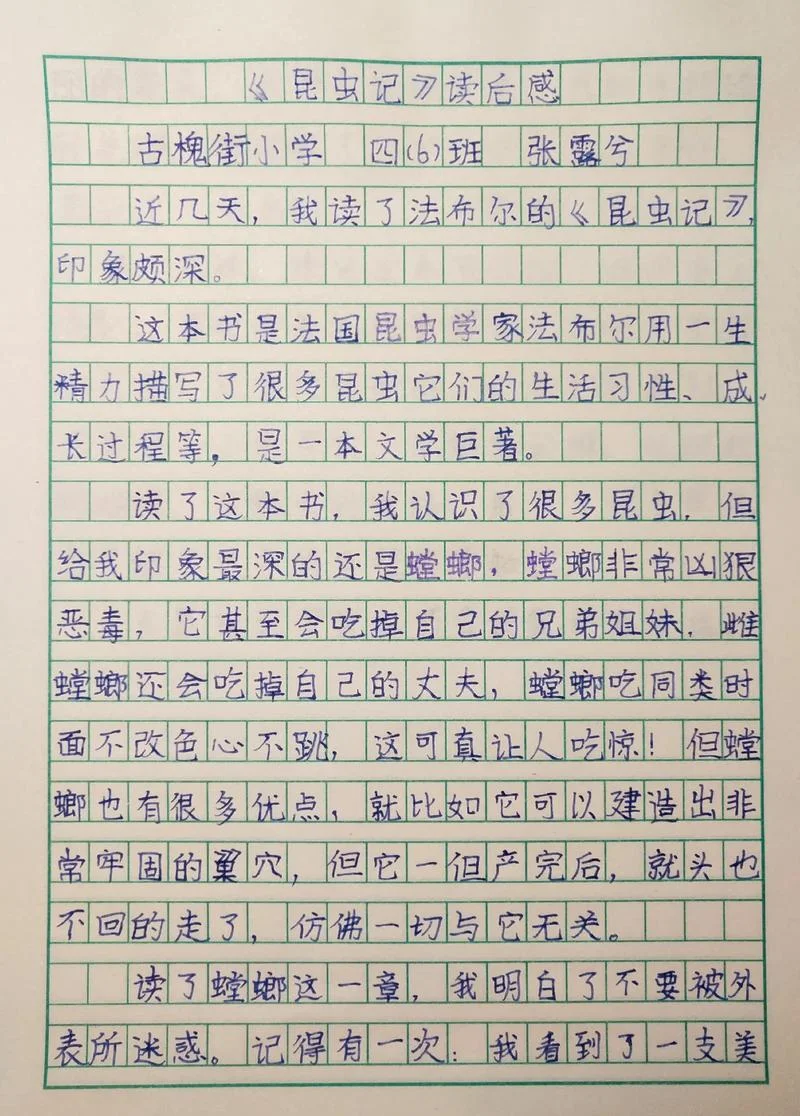 《昆虫记》读后感
古槐街小学 四(6)班 张露兮
近几天，我读了法布尔的《昆虫记》，
印象颇深。
这本书是法国昆虫学家法布尔用一生
精力描写了很多昆虫它们的生活习性、成
长过程等，是一本文学巨著。
读了这本书，我认识了很多昆虫，但
给我印象最深的还是螳螂，螳螂非常凶狠
恶毒，它甚至会吃掉自己的兄弟姐妹，雌
螳螂还会吃掉自己的丈夫，螳螂吃同类时
面不改色心不跳，这可真让人吃惊！但螳
螂也有很多优点，就比如它可以建造出非
常牢固的巢穴，但它一但产完后，就头也
不回的走了，仿佛一切与它无关。
读了螳螂这一章，我明白了不要被外
表所迷惑。记得有一次：我看到了一支美